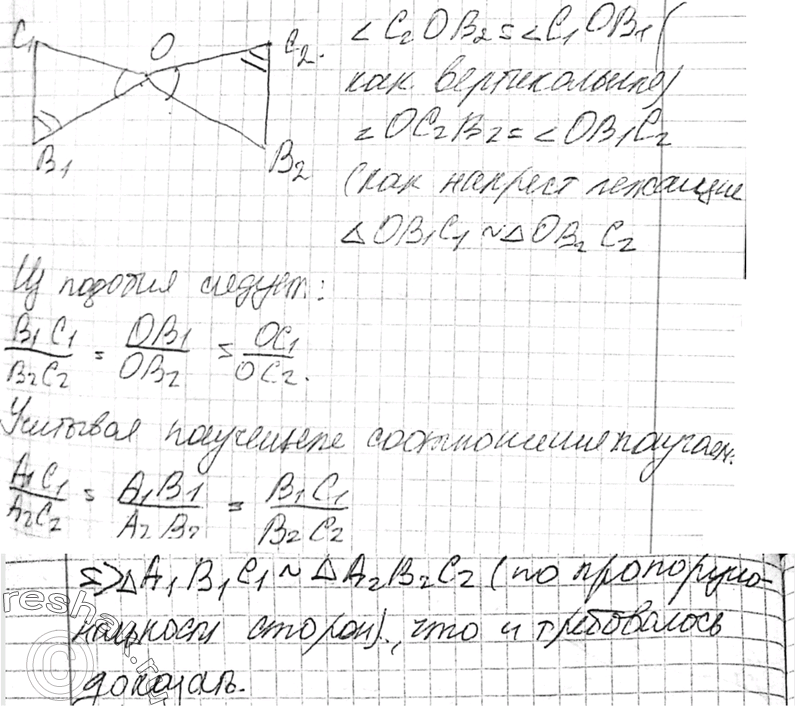 C₁ O C₂.
B₁ B₂
∠C₂OB₂ = ∠C₁OB₁ (
как вертикальные)
∠OC₂B₂ = ∠OB₁C₂
(как накрест лежащие
△OB₁C₁ ~ △OB₂C₂
Из подобия следует:
B₁C₁/B₂C₂ = OB₁/OB₂ = OC₁/OC₂.
Учитывая соотношения получаем.
A₁C₁/A₂C₂ = A₁B₁/A₂B₂ = B₁C₁/B₂C₂
=> △A₁B₁C₁ ~ △A₂B₂C₂ (по пропорцио-
нальности сторон)., что и требовалось
доказать.
reshak.ru